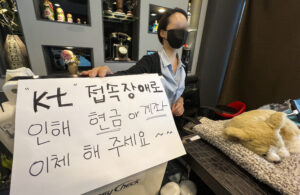 "kt" 접속장애로
인해 현금 or 계좌
이체 해 주세요~~
Check